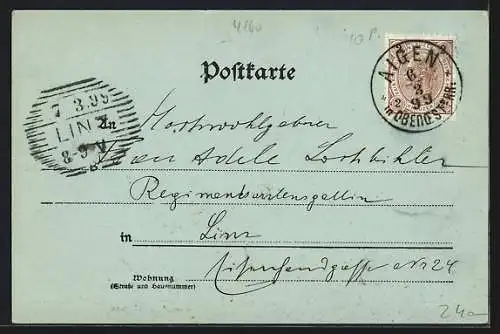 4160
10 P.
Postkarte
AIGEN
6
3
99
IN OBERÖSTERR.
7 3.99
LINZ
8-9 V
An Hochwohlgeboren
Frau Adele
Regimentsarztensgattin
in Linz
Wohnung
(Straße und Hausnummer)
24
24a